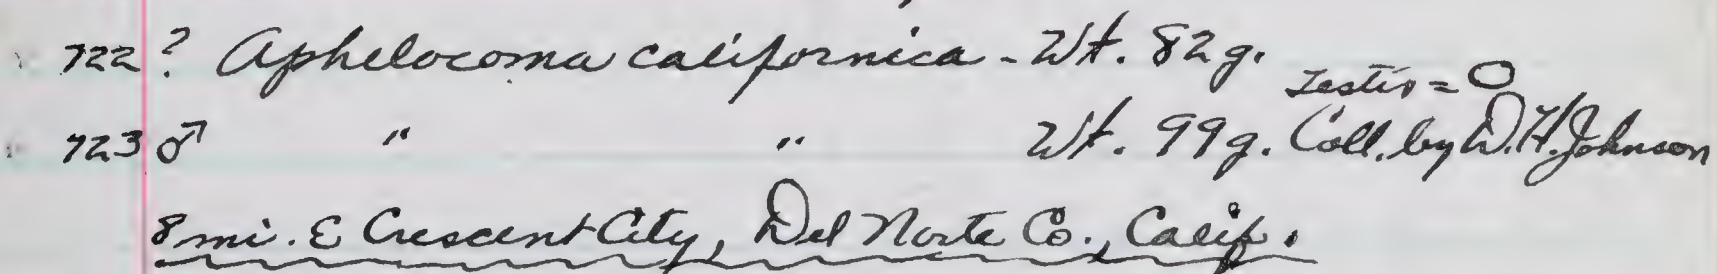 722 ? Aphelocoma californica - Wt. 82g.
Testis = O
723 ♂ " " Wt. 99g. Coll. by D.H. Johnson
8 mi. E Crescent City, Del Norte Co., Calif.